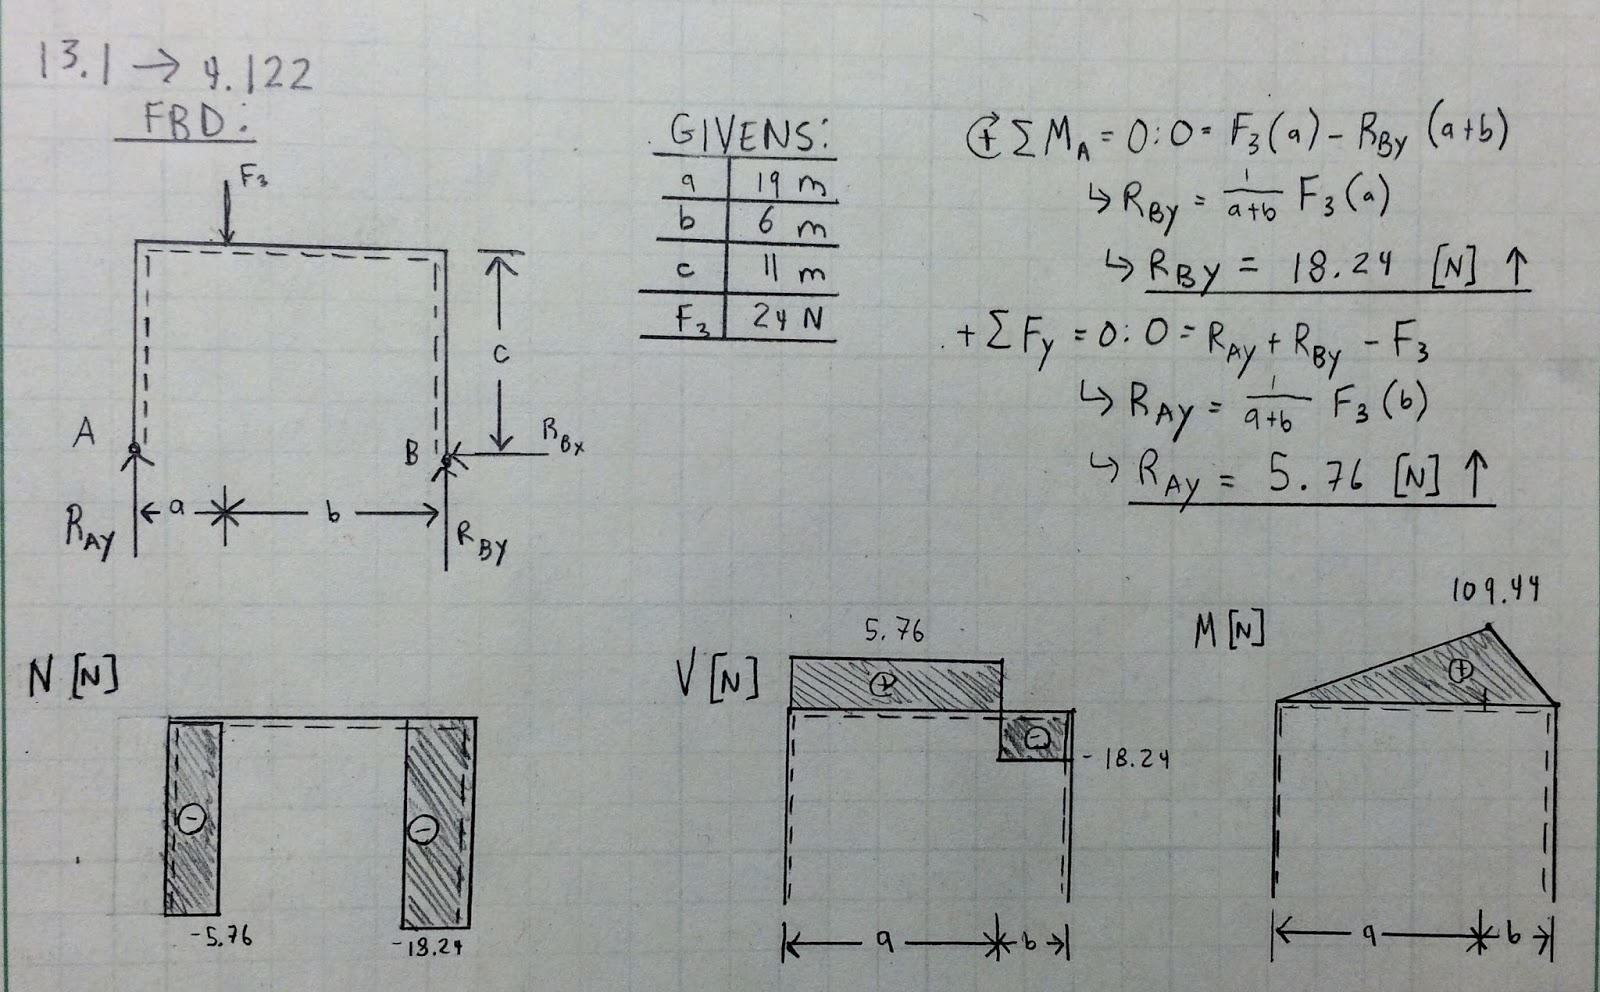 13.1 → 4.122
FBD:
F₃
A
B
R_BX
c
R_AY
a
b
R_BY
GIVENS:
a 19 m
b 6 m
c 11 m
F₃ 24 N
⊕ ΣM_A = 0: 0 = F₃(a) - R_BY (a+b)
↳ R_BY = 1/(a+b) F₃(a)
↳ R_BY = 18.24 [N] ↑
+ ΣF_Y = 0: 0 = R_AY + R_BY - F₃
↳ R_AY = 1/(a+b) F₃(b)
↳ R_AY = 5.76 [N] ↑
N [N]
-
-
-5.76
-18.24
V [N]
5.76
+
-
-18.24
a
b
M [N]
109.44
+
a
b